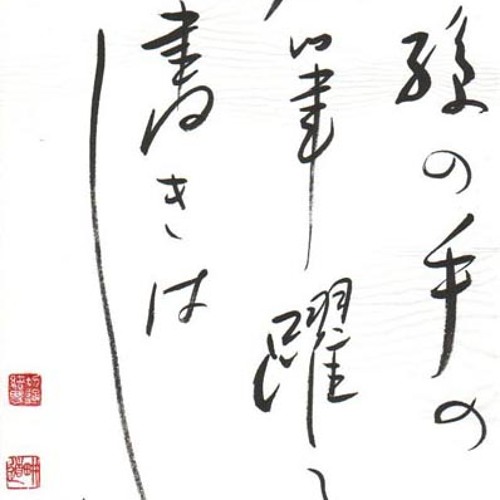 孫の手の
筆躍
書きは
し